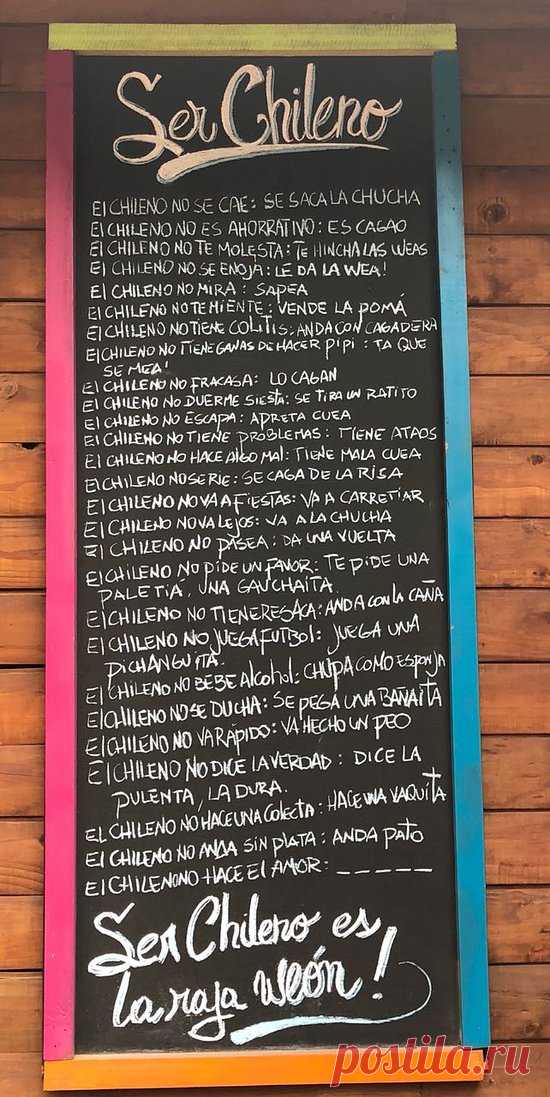 Ser Chileno
El CHILENO NO SE CAE: SE SACA LA CHUCHA
El CHILENO NO ES AHORRATIVO: ES CAGAO
El CHILENO NO TE MOLESTA: TE HINCHA LAS WEAS
El CHILENO NO SE ENOJA: LE DA LA WEA!
El CHILENO NO MIRA: SAPEA
El CHILENO NO TE MIENTE: VENDE LA POMÁ
El CHILENO NO TIENE COLITIS: ANDA CON CAGADERA
El CHILENO NO TIENE GANAS DE HACER PIPI: TA QUE
SE MEA!
El CHILENO NO FRACASA: LO CAGAN
El CHILENO NO DUERME SIESTA: SE TIRA UN RATITO
El CHILENO NO ESCAPA: APRETA CUEA
El CHILENO NO TIENE PROBLEMAS: TIENE ATAOS
El CHILENO NO HACE ALGO MAL: TIENE MALA CUEA
El CHILENO NO SE RIE: SE CAGA DE LA RISA
El CHILENO NO VA A FIESTAS: VA A CARRETIAR
El CHILENO NO VA LEJOS: VA A LA CHUCHA
El CHILENO NO PASEA: DA UNA VUELTA
El CHILENO NO PIDE UN FAVOR: TE PIDE UNA
PALETIÁ, UNA GAUCHAITA
El CHILENO NO TIENE RESACA: ANDA CON LA CAÑA
El CHILENO NO JUEGA FUTBOL: JUEGA UNA
PICHANGUITA.
El CHILENO NO BEBE Alcohol: CHUPA COMO ESPONJA
El CHILENO NO SE DUCHA: SE PEGA UNA BAÑAITA
El CHILENO NO VA RÁPIDO: VA HECHO UN PEO
El CHILENO NO DICE LA VERDAD: DICE LA
PULENTA, LA DURA.
EL CHILENO NO HACE UNA COLECTA: HACE UNA VAQUITA
El CHILENO NO ANDA SIN PLATA: ANDA PATO
El CHILENO NO HACE El AMOR: _ _ _ _ _
Ser Chileno es
la raja weón!
postila.ru